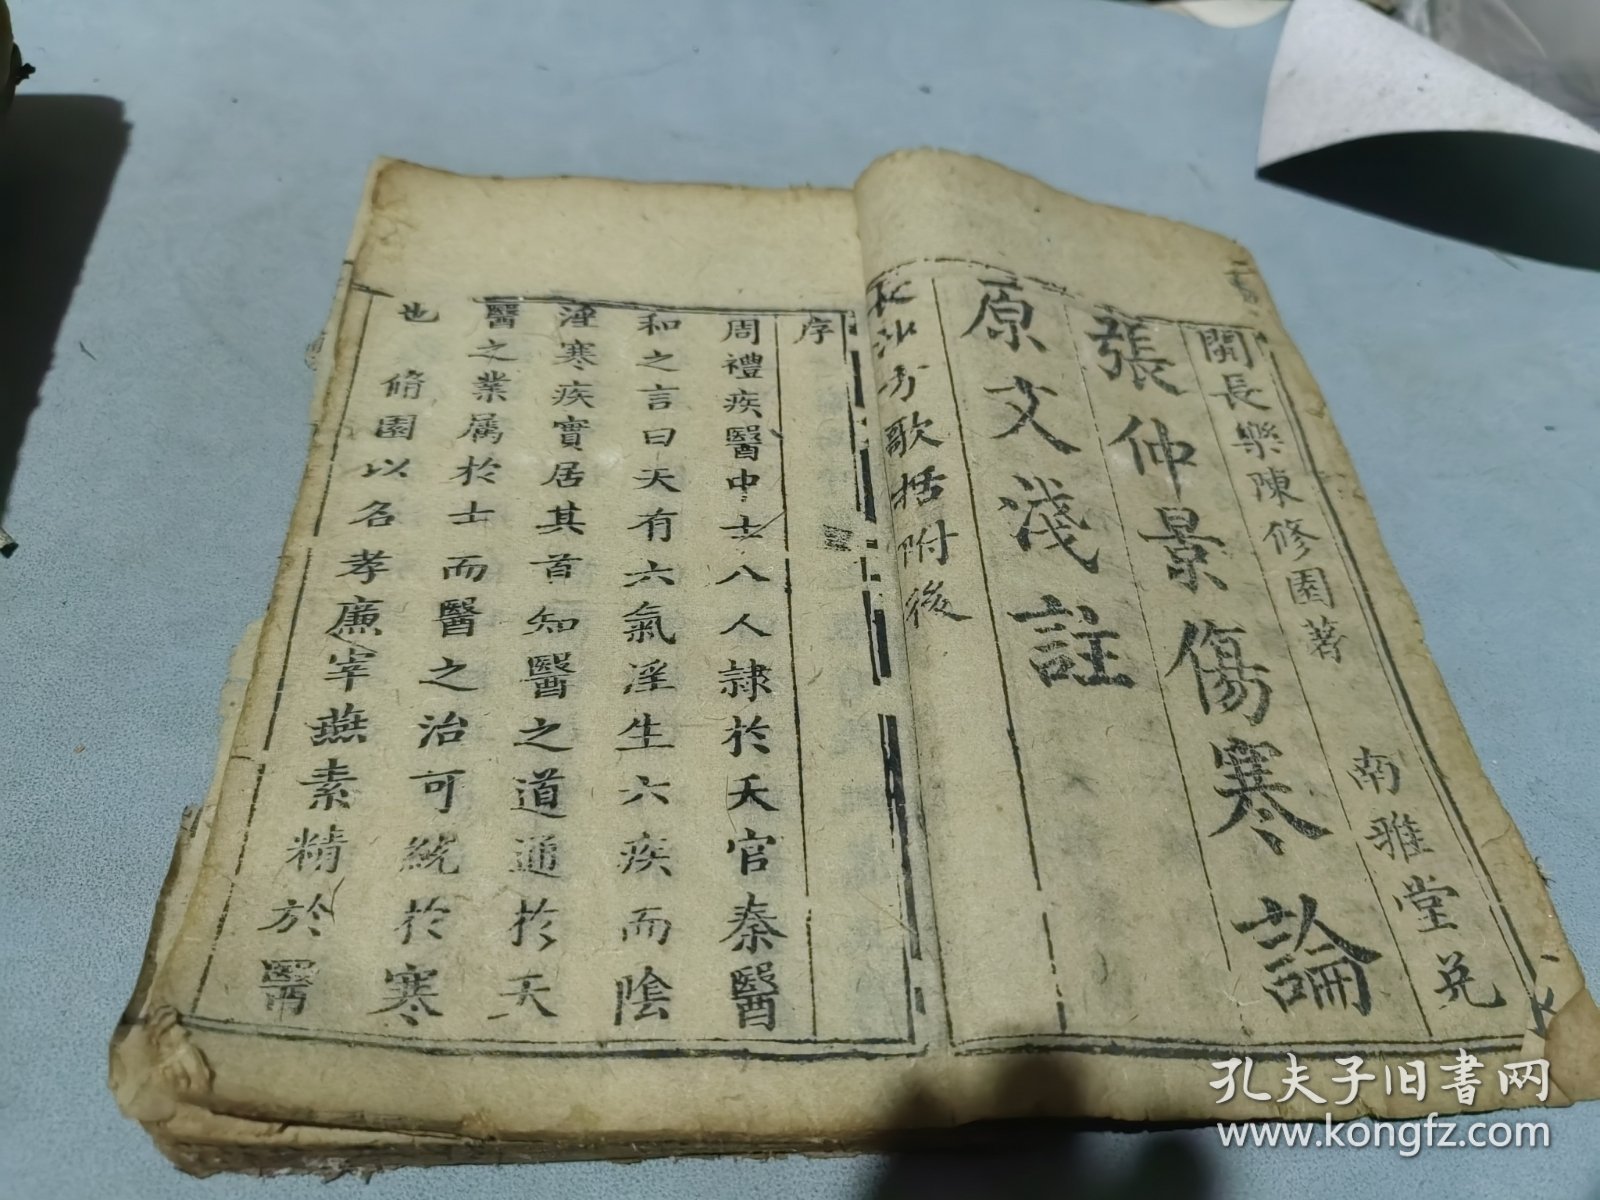 閩長樂陳修園著 南雅堂兑
張仲景傷寒論
原文淺註
長沙方歌括附後
序
周禮疾醫中士八人隷於天官秦醫
和之言曰天有六氣淫生六疾而陰
淫寒疾實居其首知醫之道通於天
醫之業属於士而醫之治可統於寒
也 脩園以名孝廉宰燕素精於醫
孔夫子旧书网
www.kongfz.com